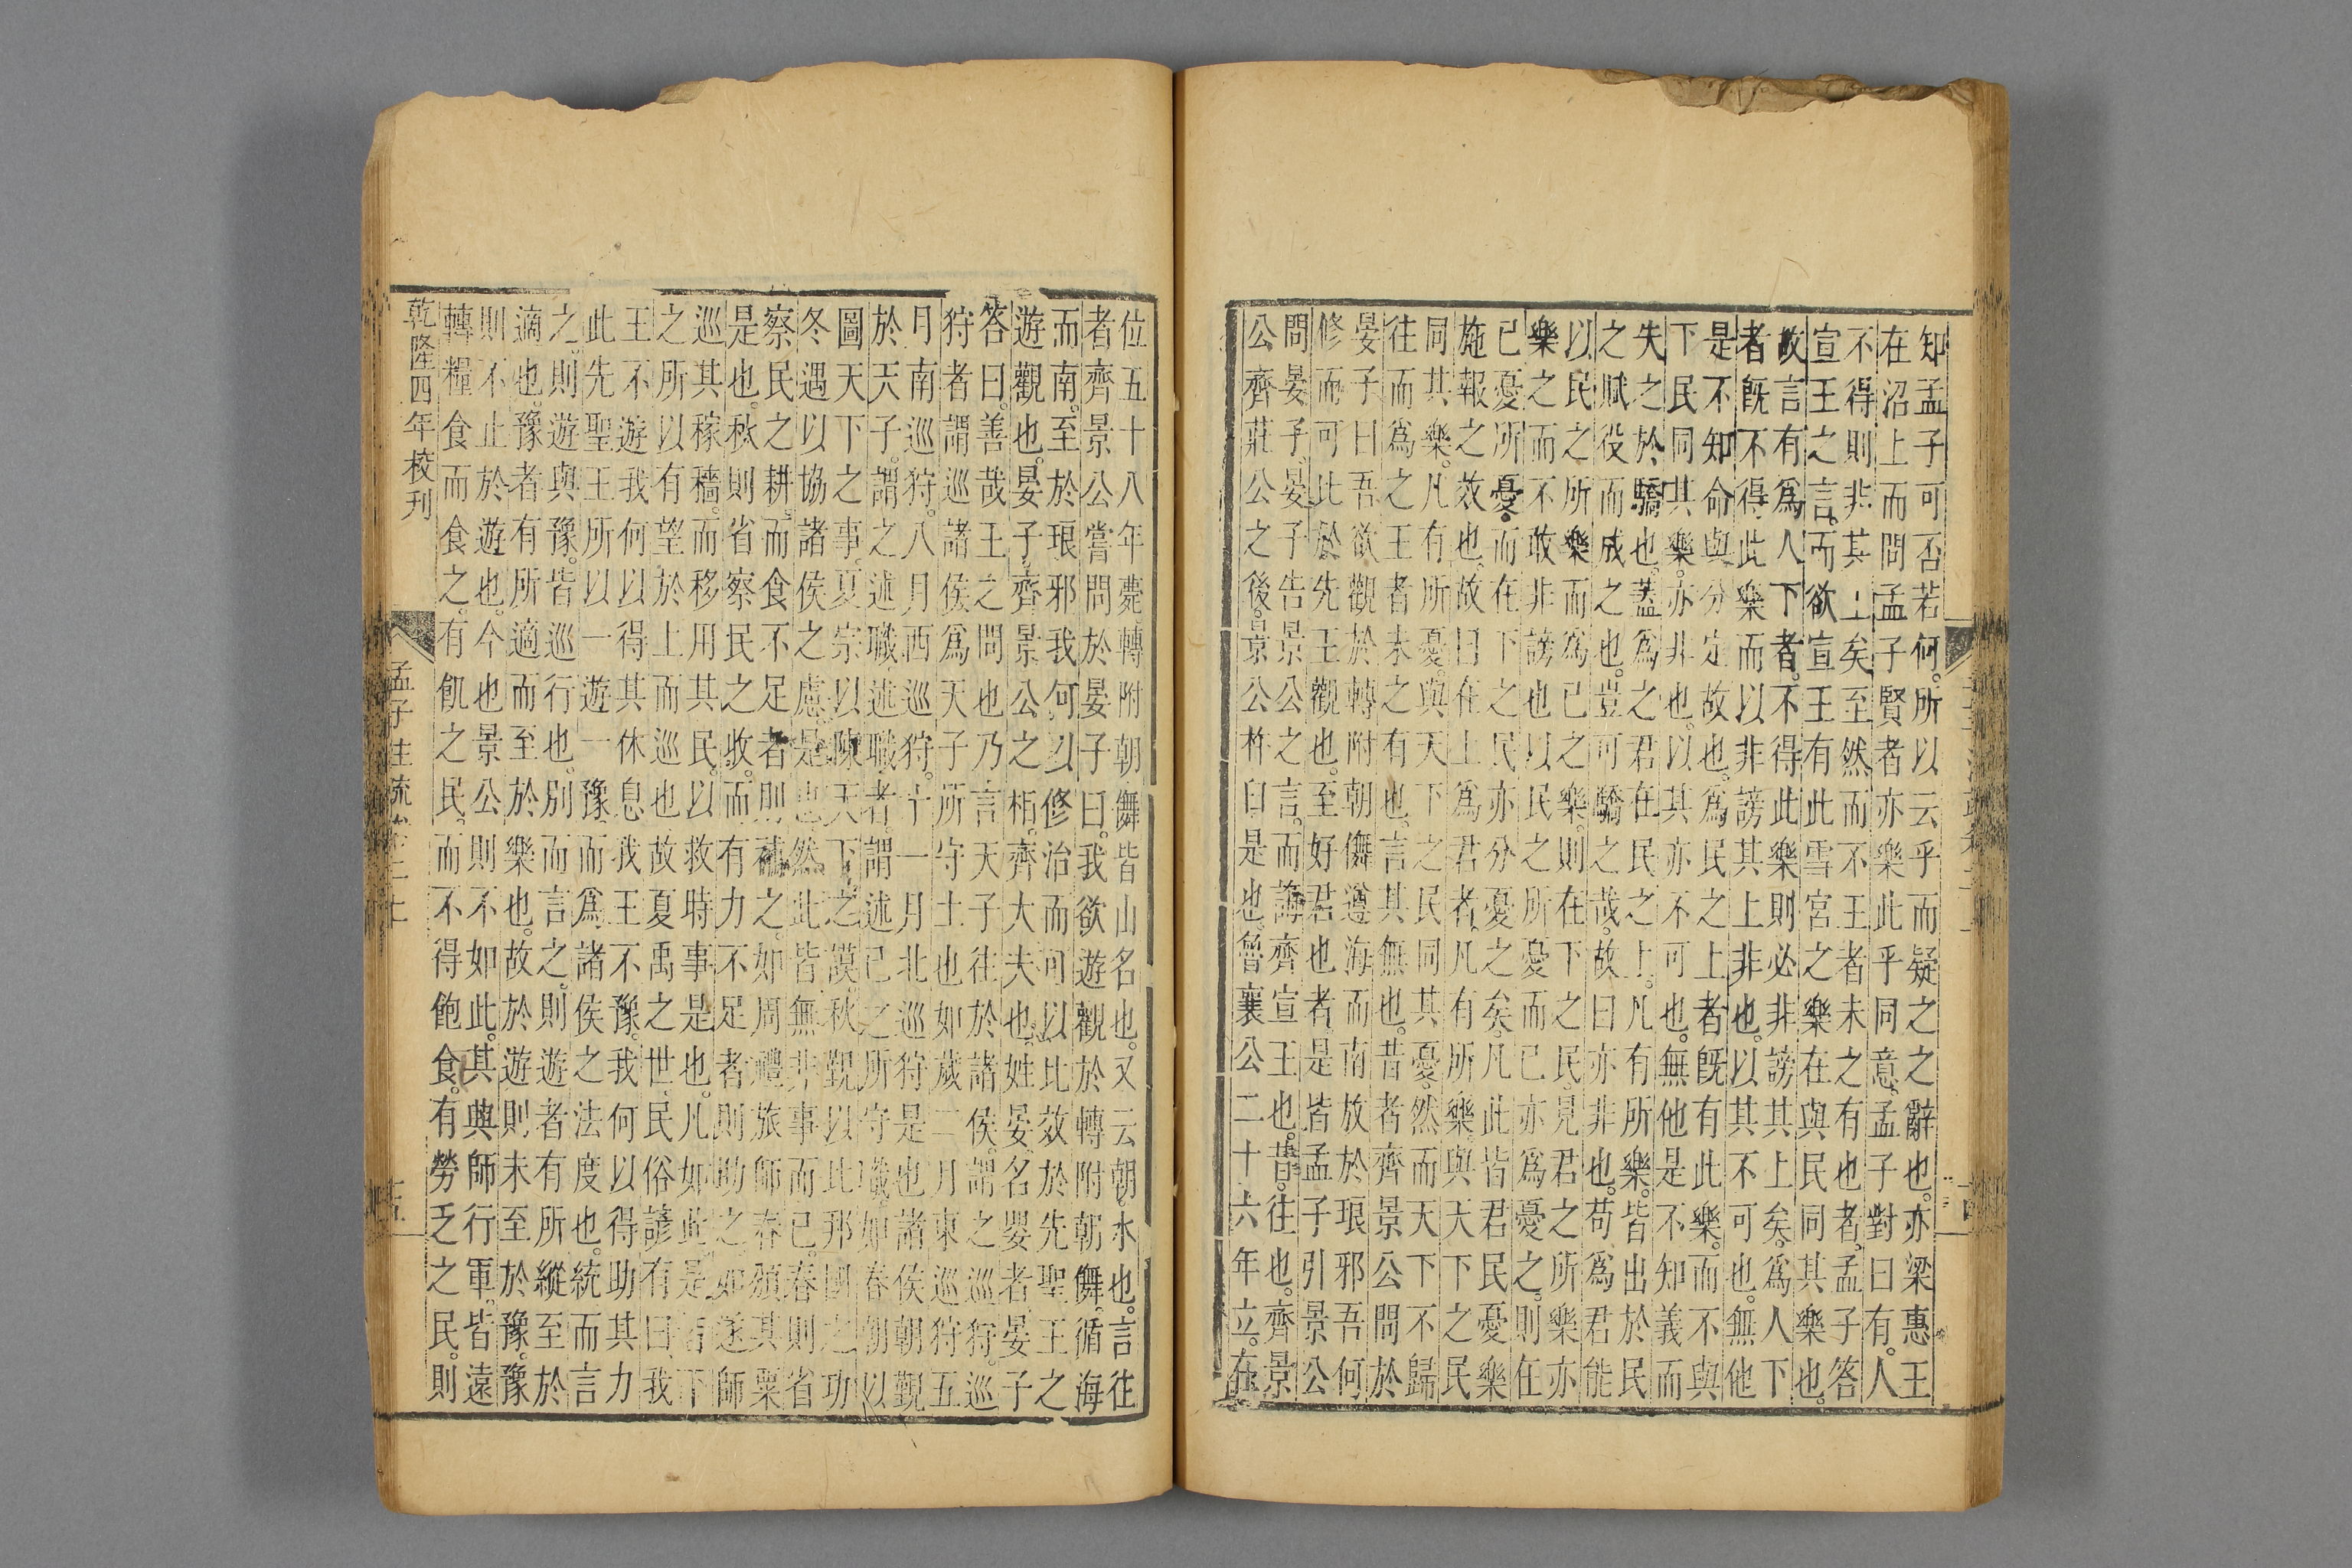 知孟子可否若何。所以云乎而疑之之辭也。亦梁惠王
在沼上而問孟子賢者亦樂此乎同意。孟子對曰有。人
不得則非其上矣至然而不王者未之有也者。孟子答
宣王之言。而欲宣王有此雪宮之樂在與民同其樂也。
故言有爲人下者。不得此樂則必非謗其上矣。爲人下
者既不得此樂而以非謗其上非也。以其不可也。無他
是不知命與分定故也。爲民之上者既有此樂。而不與
下民同其樂。亦非也。以其亦不可也。無他是不知義而
失之於驕也。蓋爲之君在民之上。凡有所樂。皆出於民
之賦役而成之也。豈可驕之哉。故曰亦非也。苟爲君能
以民之所樂而爲已之樂。則在下之民。見君之所樂亦
樂之而不敢非謗也以民之所憂而已亦爲憂之。則在
已憂所憂。而在下之民亦分憂之矣。凡此皆君民憂樂
施報之效也。故曰在上爲君者。凡有所樂與天下之民
同其樂。凡有所憂。與天下之民同其憂。然而天下不歸
往而爲之王者未之有也。言其無也。昔者齊景公問於
晏子曰吾欲觀於轉附朝儛遵海而南放於琅邪吾何
修而可此於先王觀也。至好君也者。是皆孟子引景公
問晏子。晏子告景公之言。而誨齊宣王也。昔往也。齊景
公齊莊公之後。景公杵臼是也。魯襄公二十六年立。在
位五十八年薨轉附朝儛皆山名也。又云朝。水也。言往
者齊景公嘗問於晏子曰。我欲遊觀於轉附朝儛。循海
而南。至於琅邪我何以修治而可以比效於先聖王之
遊觀也。晏子齊景公之栢。齊大夫也。姓晏名嬰者。晏子
答曰。善哉王之問也乃言天子往於諸侯。謂之巡狩。巡
狩者謂巡諸侯爲天子所守土也如歲二月東巡狩五
月南巡狩。八月西巡狩。十一月北巡狩是也諸侯朝覲
於天子。謂之述職述職者。謂述已之所守職如春朝以
圖天下之事。夏宗以陳天下之謨秋覲以比邦國之功
冬遇以協諸侯之慮是也然此皆無非事而已。春則省
察民之耕。而食不足者則補之。如周禮旅師春頒其粟
是也。秋則省察民之收。而有力不足者則助之如遂師
巡其稼穡。而移用其民。以救時事是也。凡如此是皆下
之所以有望於上而巡也故夏禹之世。民俗諺有曰我
王不遊我何以得其休息我王不豫。我何以得助其力
此先聖王所以一遊一豫。而爲諸侯之法度也。統而言
之。則遊與豫。皆巡行也。別而言之。則遊者有所縱至於
適也。豫者有所適而至於樂也。故於遊則未至於豫。豫
則不止於遊也。今也景公則不如此。其興師行軍。皆遠
轉糧食而食之。有飢之民。而不得飽食。有勞乏之民。則
乾隆四年校刊
孟子注疏卷二上